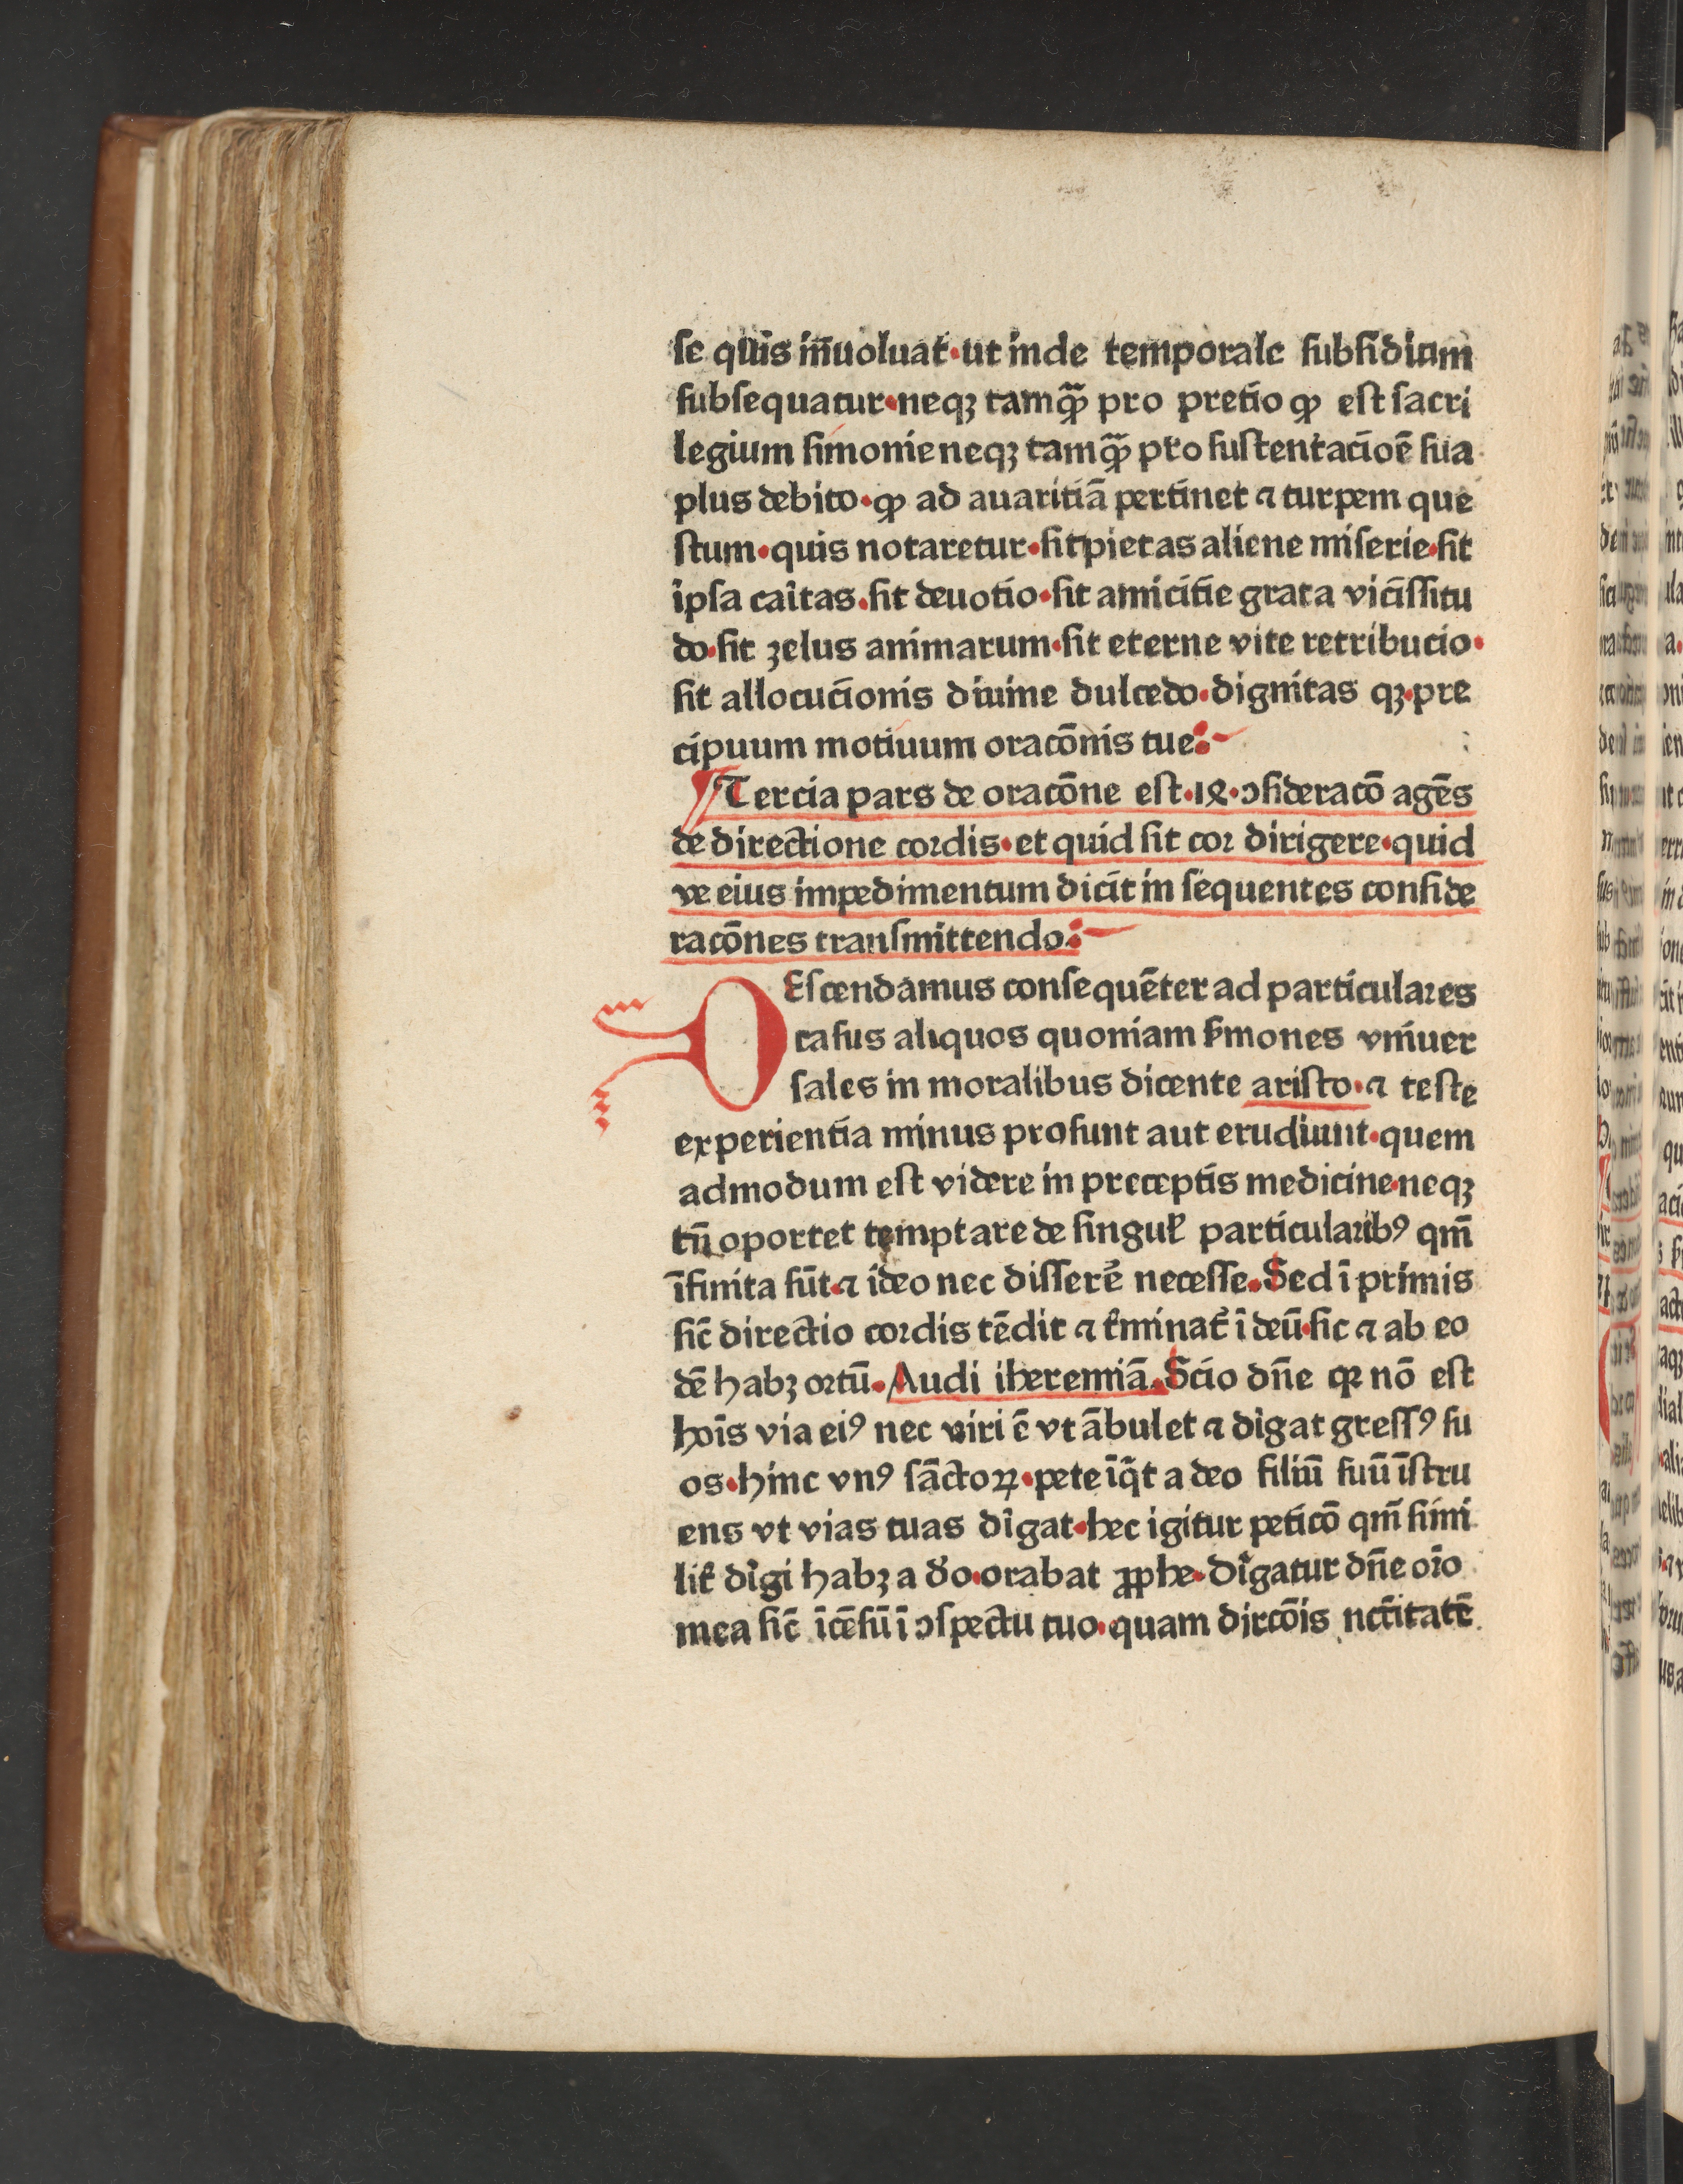 se quis inuoluat · ut inde temporale subsidium
subsequatur · neqꝫ tamꝙ̃ pro pretio ꝙ est sacri
legium simonie neqꝫ tamꝙ̃ pro sustentacioē sua
plus debito · ꝙ ad auaritiā pertinet ⁊ turpem que
stum · quis notaretur · sit pietas aliene miserie · sit
ipsa caïtas · sit deuotio · sit amicitie grata vicissitu
do · sit zelus animarum · sit eterne vite retributio ·
sit allocucionis diuine dulcedo · dignitas qꝫ · pre
cipuum motiuum oracōnis tue ·
¶ Tercia pars de oracōne est · 18 · ꝯsideracō agēs
de directione cordis · et quid sit cor dirigere · quid
ve eius impedimentum dicit in sequentes conside
racōnes transmittendo ·
DEscendamus consequēter ad particulares
casus aliquos quoniam ẜmones vniuer
sales in moralibus dicente aristo · ⁊ teste
experientia minus prosunt aut erudiunt · quem
admodum est videre in preceptis medicine · neqꝫ
tn̄ oportet temptare de singuł particularibꝰ qm̄
īfinita sūt · ⁊ ideo nec dissere᷑ necesse · Sed ī primis
sic̄ directio cordis tēdit ⁊ t᷑minat᷑ ī deū · sic ⁊ ab eo
dē habꝫ ortū · Audi iheremiā · Scio dn̄e qꝛ nō est
hoīs via eiꝰ nec viri ē vt ābulet ⁊ dīgat gressꝰ su
os · hinc vnꝰ sāctoꝝ · pete īq̄t a deo filiū suū īstru
ens vt vias tuas dīgat · hec igitur peticō qm̄ simi
lit᷑ dīgi habꝫ a d̄o · orabat ꝓphe · Dīgatur dn̄e oīo
mea sic̄ īcēsū ī ꝯspectu tuo · quam dircōis nc̄citatē